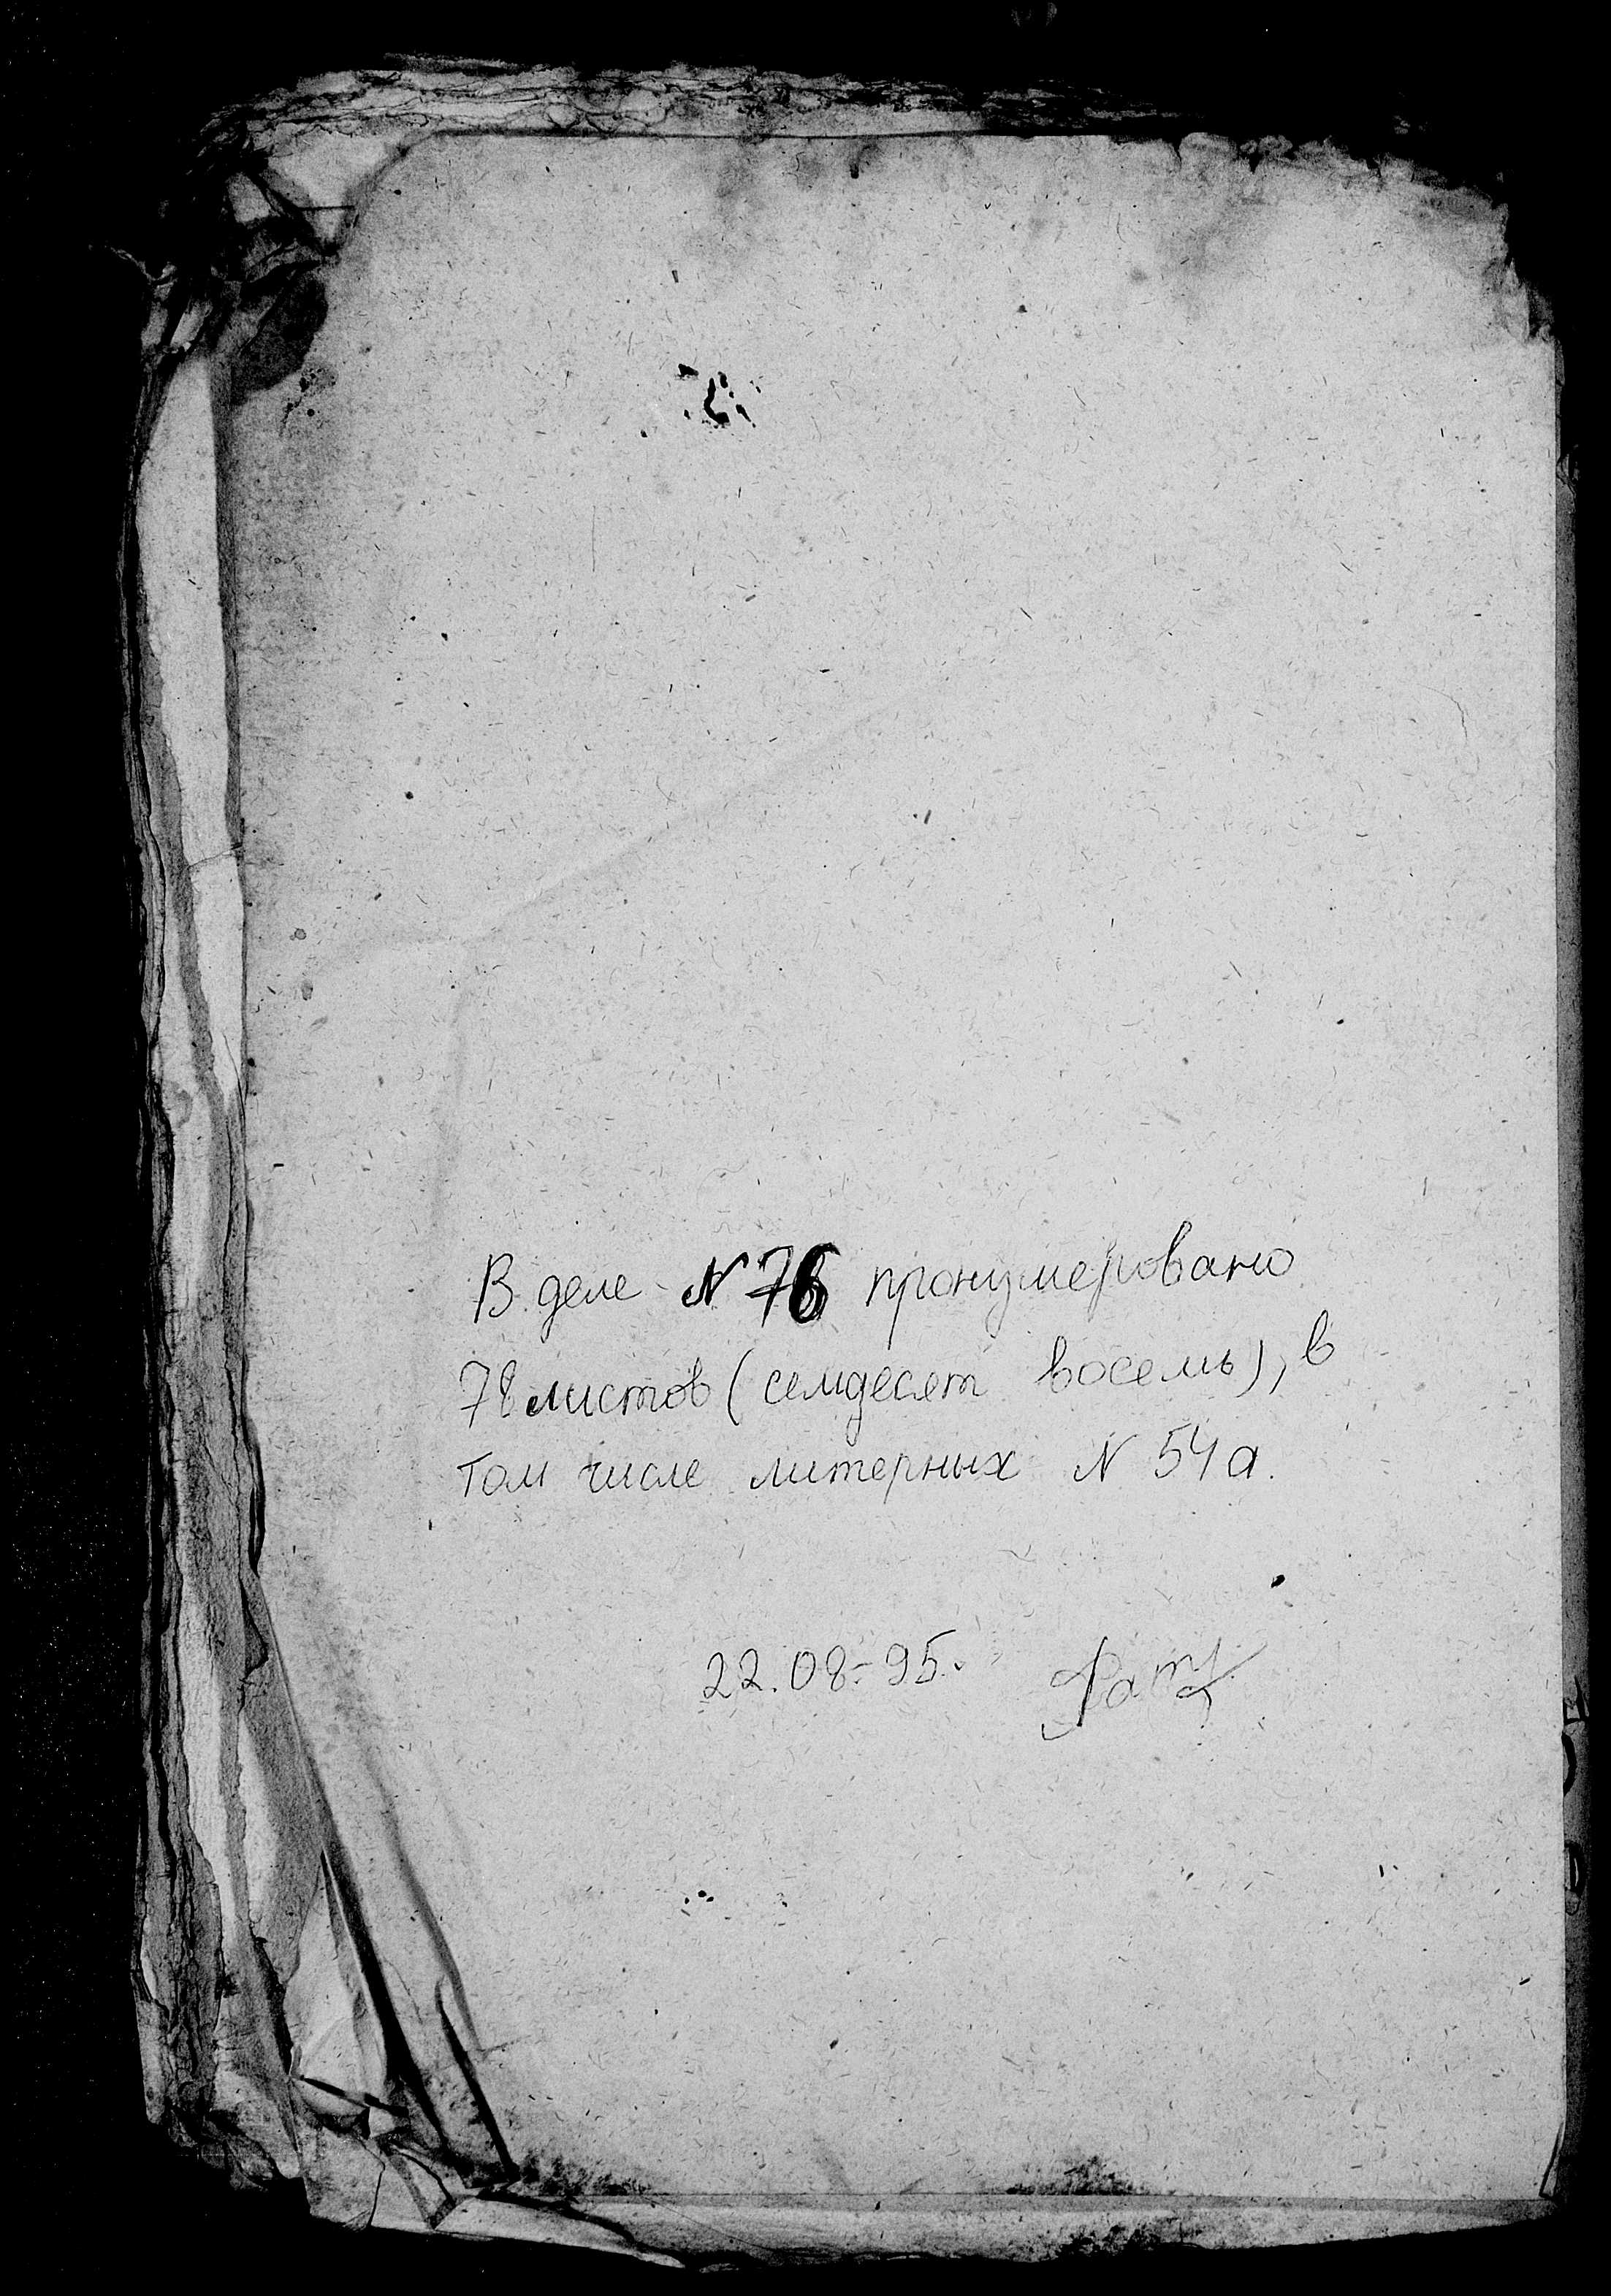 В деле N 76 пронумеровано
78 листов (семдесят восемь), в
том числе литерных N 54а.
22.08.-95.